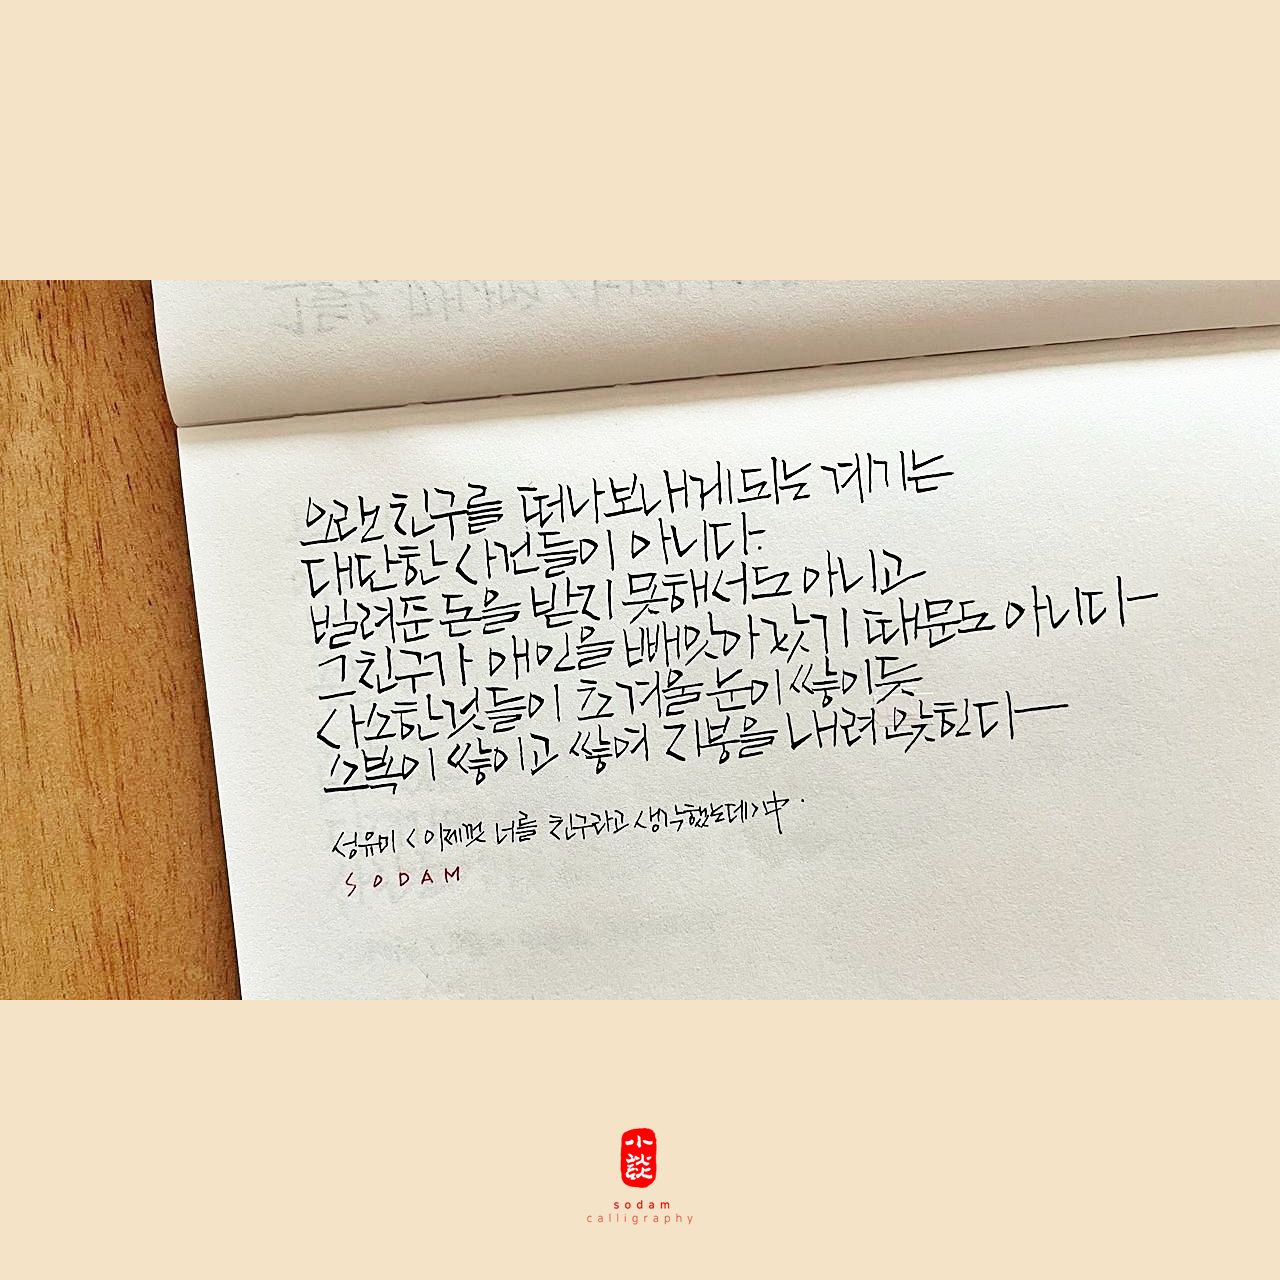 오랜 친구를 떠나보내게 되는 계기는
대단한 사건들이 아니다.
빌려준 돈을 받지 못해서도 아니고
그 친구가 애인을 빼앗아 갔기 때문도 아니다-
사소한 것들이 초겨울 눈이 쌓이듯
소복이 쌓이고 쌓여 지붕을 내려앉힌다-
성유미 <이제껏 너를 친구라고 생각했는데>中.
SODAM
小談
sodam
calligraphy